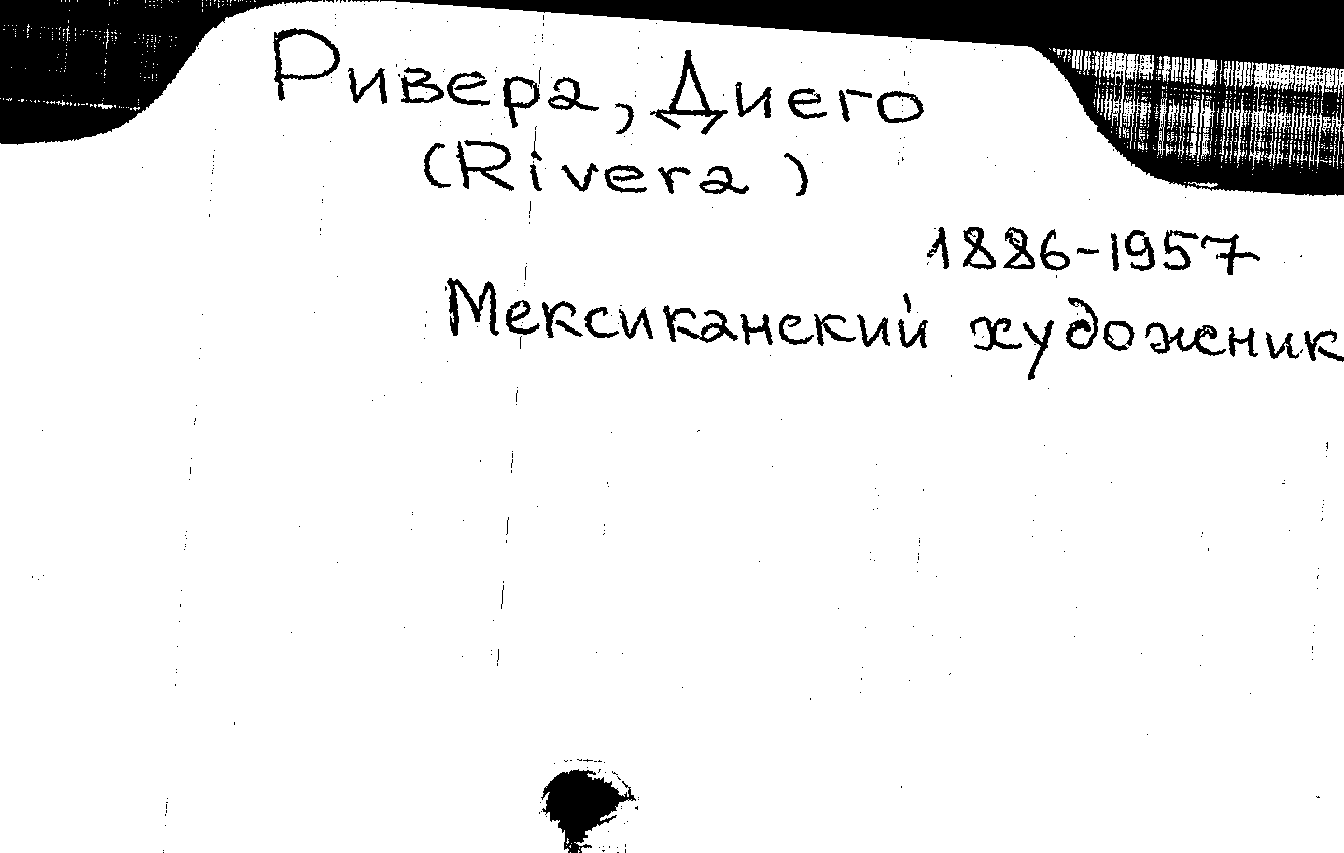 Ривера, Диего
(Rivera)
1886-1957
Мексиканский художник